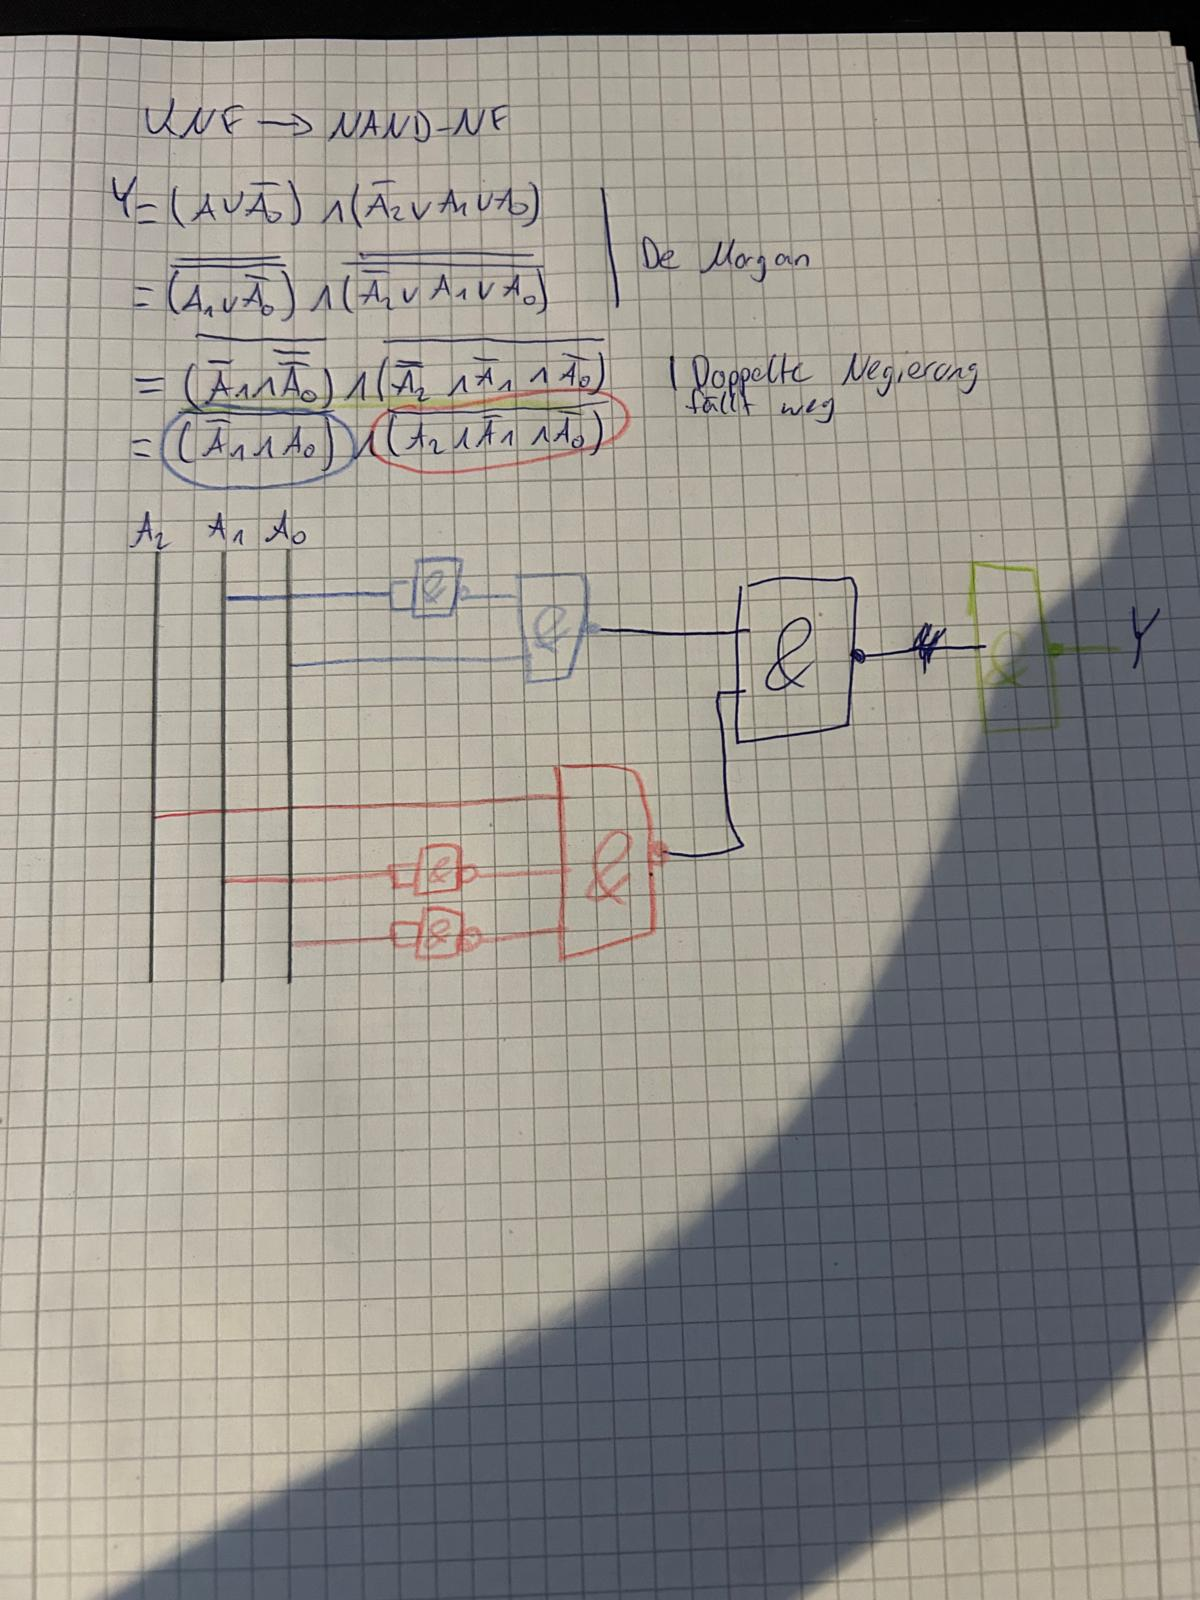 KNF → NAND-NF
Y = (A ∨ A̅₀) ∧ (A̅₂ ∨ A₁ ∨ A₀)
= (A₁ ∨ A̅₀)̿ ∧ (A̅₂ ∨ A₁ ∨ A₀)̿ | De Morgan
= (A̅₁ ∧ A̿₀)̅ ∧ (A̿₂ ∧ A̅₁ ∧ A̅₀)̅ | Doppelte Negierung
fällt weg
= (A̅₁ ∧ A₀)̅ ∧ (A₂ ∧ A̅₁ ∧ A̅₀)̅
A₂ A₁ A₀
&
& & & Y
&
&
&